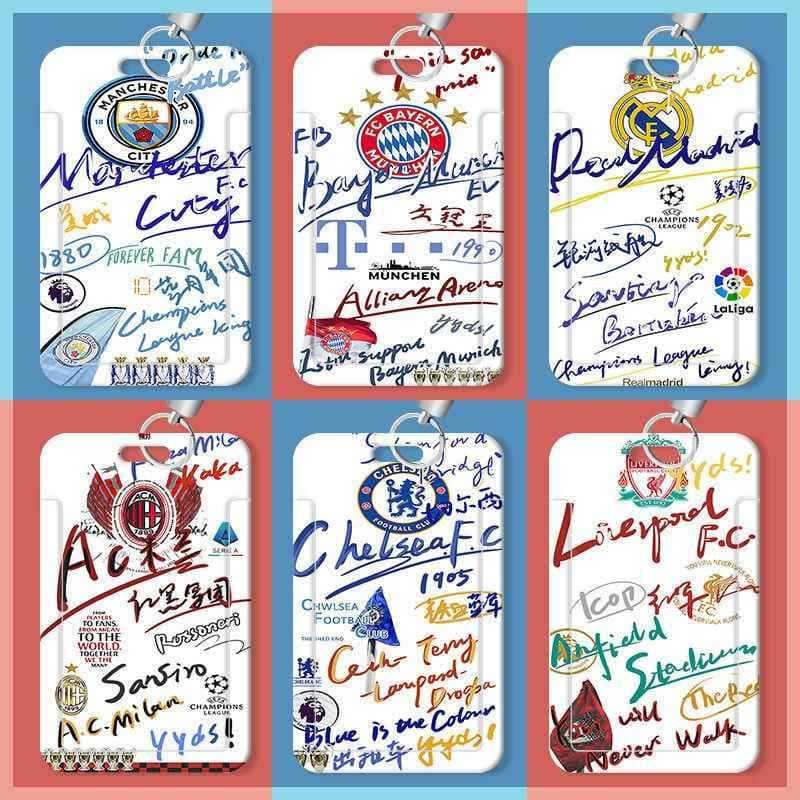 "Pride in
Battle"
MANCHESTER
18 94
CITY
Manchester
F.C
City
1880
FOREVER FAM
蓝月军团
Champions
League King
"mia san
mia"
FC BAYERN
MÜNCHEN
FCB
Bayern Munich
T
1990
MÜNCHEN
Allianz Arena
yyds!
I still support
Bayern Munich
Hala
madrid
Real Madrid
UEFA
CHAMPIONS
LEAGUE
1902
银河战舰
yyds!
Santiago
LaLiga
Bernabéu
Champions League
king!
Realmadrid
Forza Milan
Kaka
ACM
1899
AC米兰
SERIE A
红黑军团
FROM
PLAYERS
TO FANS,
FROM MILAN
TO THE
WORLD,
TOGETHER
WE THE
MANY
Rossoneri
SanSiro
CHAMPIONS
LEAGUE
A.C.Milan
yyds!
Stamford
Bridge"
CHELSEA
FOOTBALL CLUB
切尔西
Chelsea F.C
1905
CHWLSEA
FOOTBALL
CLUB
THE SHED END
蓝军
Cech- Terry
-Lampard-
Drogba
CHELSEA FC
Blue is the Colour
yyds!
yyds!
LIVERPOOL
FOOTBALL CLUB
Liverpool
F.C.
YOU'LL NEVER WALK ALONE
Kop
红军
Anfield
Stadium
The Red
will
Never Walk